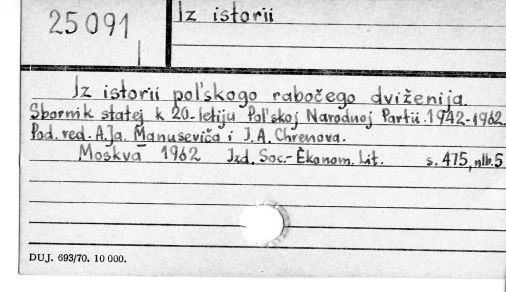 25091
Iz istorii
Iz istorii pol'skogo rabočego dviženija.
Sbornik statej k 20-letiju Pol'skoj Narodnoj Partii. 1942-1962.
Pod. red. A.Ja. Manuseviča i I.A. Chrenova.
Moskva 1962 Izd. Soc.-Ėkonom. Lit. s. 475, nlb. 5
DUJ. 693/70. 10 000.